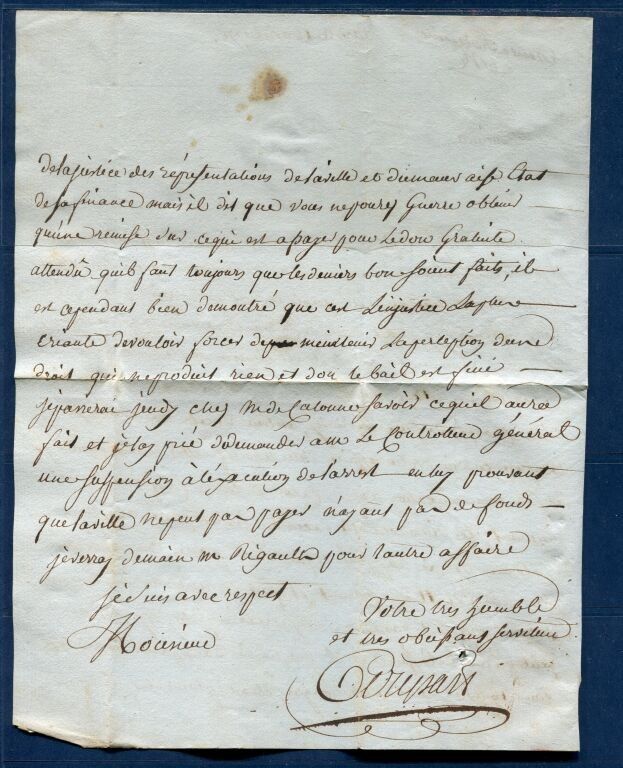 de la justice des représentations de la ville et du mauvaise Etat
de sa finance mais il dit que vous ne pourez Guerre obtenir
qu'une remise sur ce qui est a payer pour Le don Gratuite
attendû qu'il faut toujours que les deniers bon soient faits, il
est cependant bien demontré que c'est L'injustice La plus
criante de vouloir forcer de maintenir La perception d'une
droit qui ne produit rien et don le bail est fini
je passerai jeudy chez M. de Calonne savoir ce qu'il aura
fait et je lay prié de demander a M. Le Controlleur général
une suspension à l'éxécution de l'arrest en luy prouvant
que la ville ne peut pas payer n'ayant pas de fonds
je verray demain M. Rigault pour l'autre affaire
je suis avec respect
Monsieur
Votre tres humble
et tres obeissans serviteur